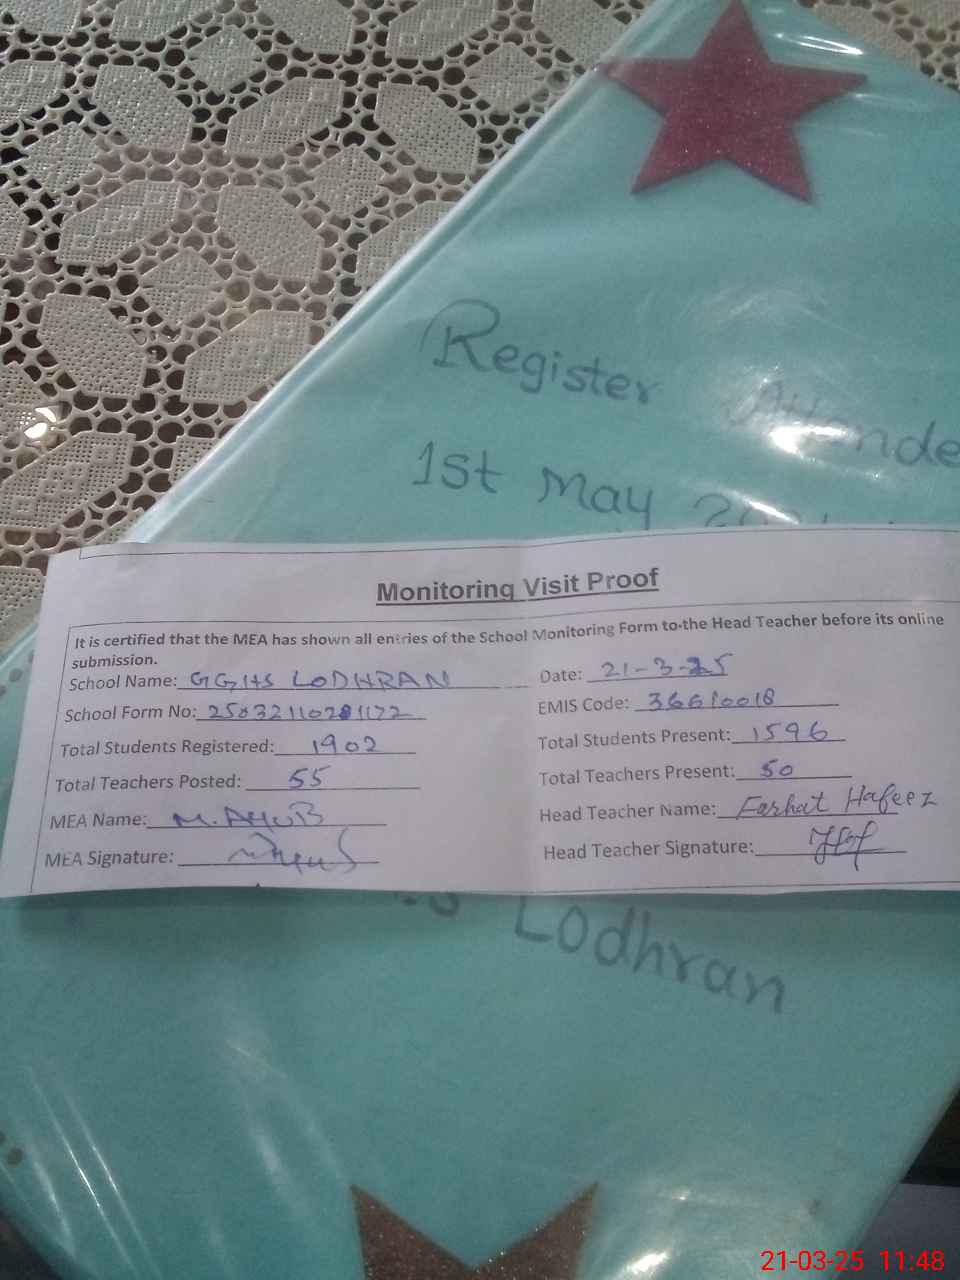 Register Attende
1st May
Monitoring Visit Proof
It is certified that the MEA has shown all entries of the School Monitoring Form to the Head Teacher before its online
submission.
School Name: GGHS LODHRAN Date: 21-3-25
School Form No: 25032110281172 EMIS Code: 36610018
Total Students Registered: 1902 Total Students Present: 1596
Total Teachers Posted: 55 Total Teachers Present: 50
MEA Name: M. AYUB Head Teacher Name: Farhat Hafeez
MEA Signature: Head Teacher Signature:
Lodhran
21-03-25 11:48